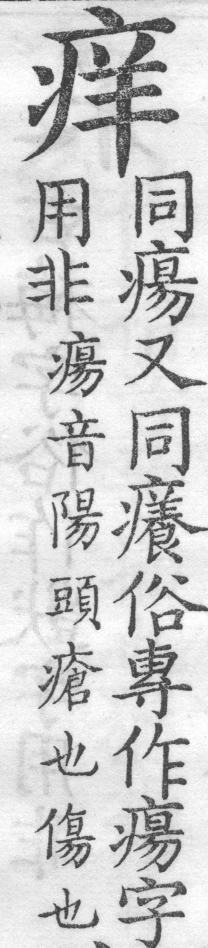 痒
同瘍又同癢俗專作瘍字
用非瘍音陽頭瘡也傷也